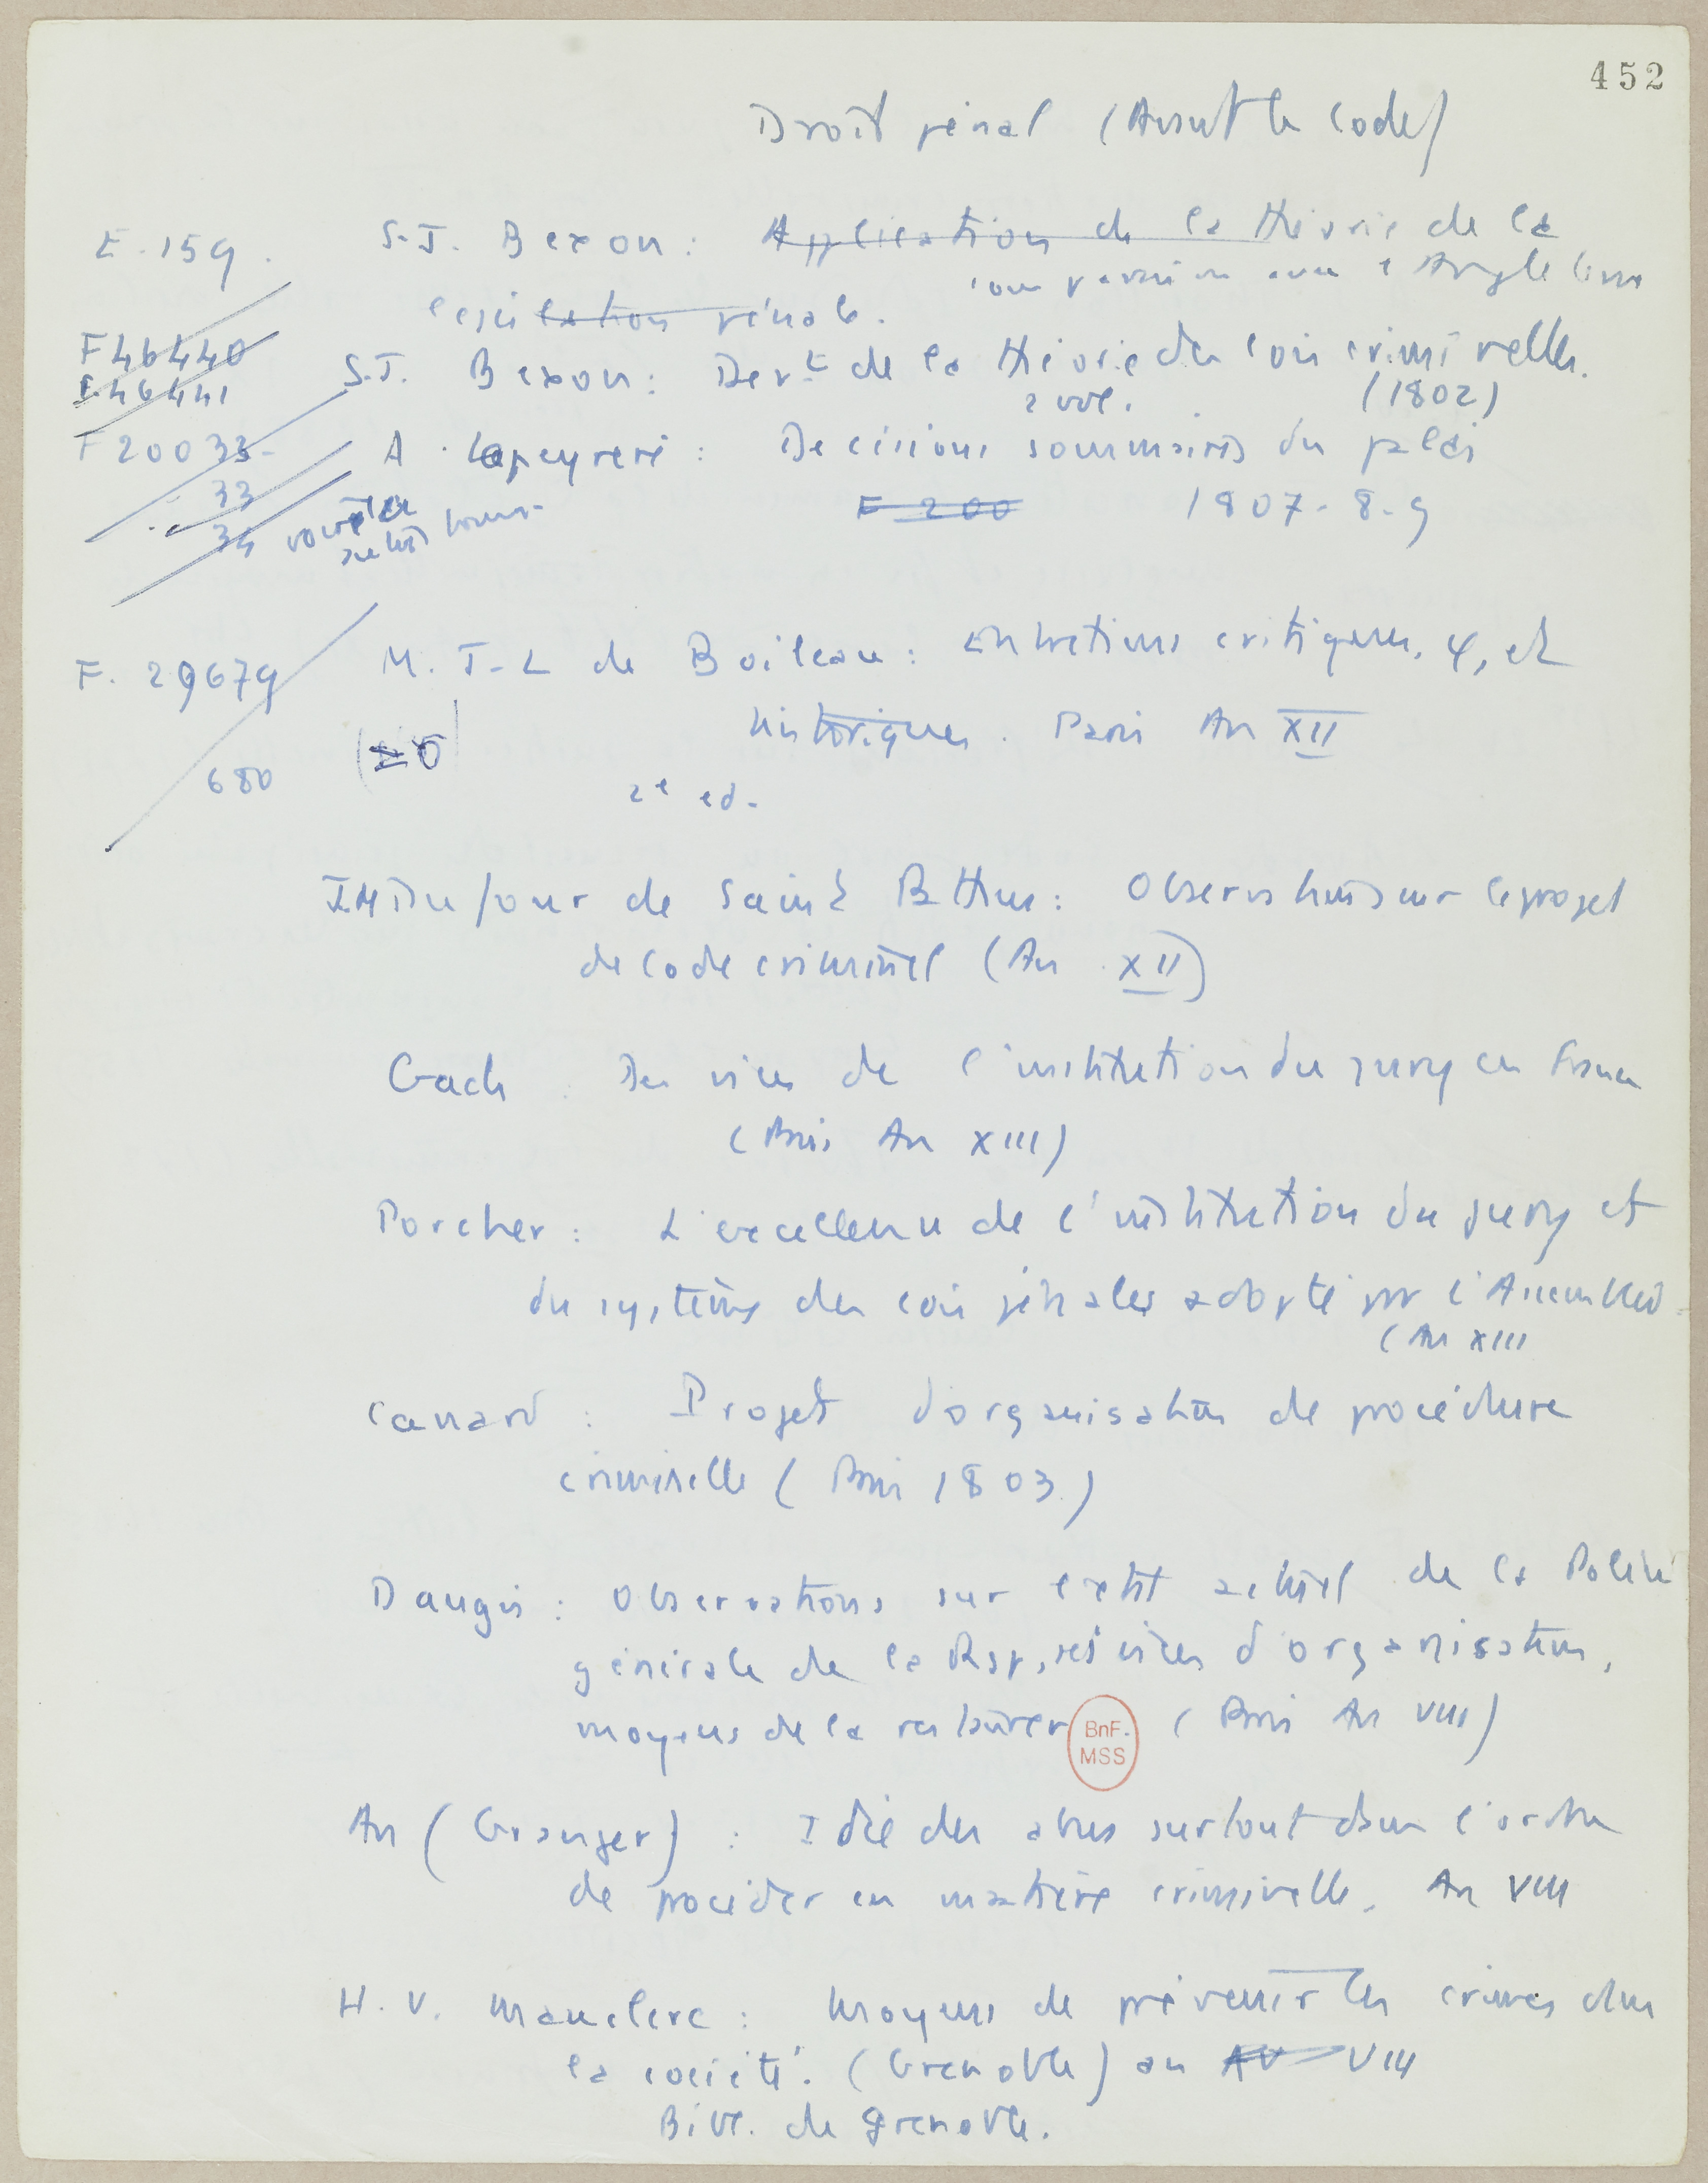 452
Droit pénal (Avant le Code)
E. 159. S.J. Bexon : Application de la théorie de la
législation pénale. comparaison avec l'Angleterre
F 46440
F 46441 S.J. Bexon : Devt de la théorie des lois criminelles.
2 vol. (1802)
F 20033 - A. Lapeyrere : Décisions sommaires du palais
33
34 F 200 1807-8-9
F. 29679 M. J-L de Boileau : Entretiens critiques, φ, et
historiques. Paris An XII
680 2e ed.
JM Dufour de Saint Pathus : Observations sur le projet
de code criminel (An XII)
Gach Des vices de l'institution du jury en France
(Paris An XIII)
Porcher : L'excellence de l'institution du jury et
du système des lois pénales adopté par l'Assemblée
(An XIII
Canard : Projet d'organisation de procédure
criminelle (Paris 1803)
Daugis : Observations sur l'état actuel de la Police
générale de la Rep, ses vices d'organisation,
moyens de la restaurer (Paris An VIII)
BnF.
MSS
An (Granger) : Idée des abus surtout dans l'ordre
de procéder en matière criminelle. An VIII
H. V. Mauclerc : Moyens de prévenir les crimes dans
la société. (Grenoble) an VIII
Bibl. de Grenoble.